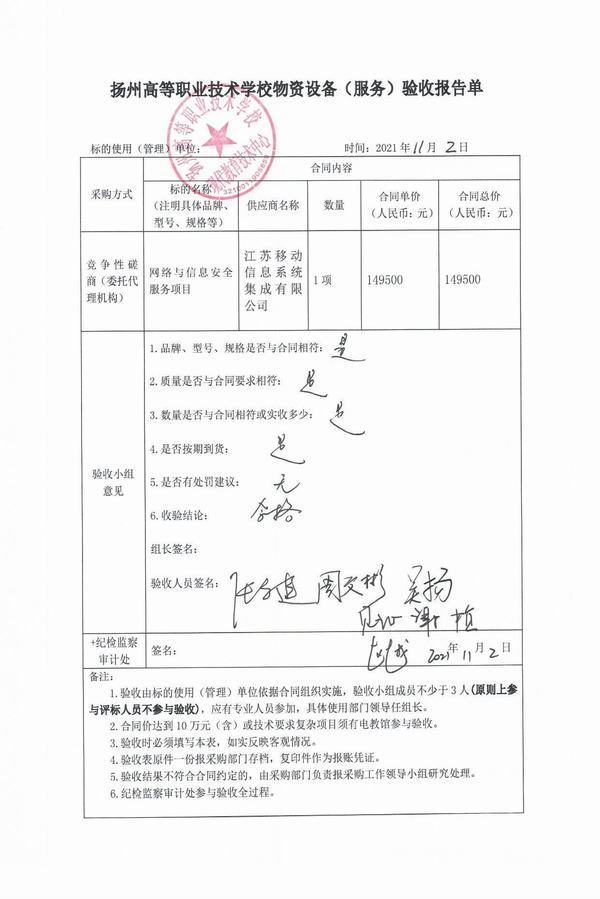 扬州高等职业技术学校物资设备（服务）验收报告单
扬州高等职业技术学校
现代教育技术中心
标的使用（管理）单位：
时间：2021年11月2日
采购方式
合同内容
标的名称
（注明具体品牌、
型号、规格等）
供应商名称
数量
合同单价
（人民币：元）
合同总价
（人民币：元）
竞争性磋
商（委托代
理机构）
网络与信息安全
服务项目
江苏移动
信息系统
集成有限
公司
1项
149500
149500
验收小组
意见
1.品牌、型号、规格是否与合同相符：是
2.质量是否与合同要求相符：是
3.数量是否与合同相符或实收多少：是
4.是否按期到货：是
5.是否有处罚建议：无
6.收验结论：合格
组长签名：
验收人员签名：周文彬 吴扬
+纪检监察
审计处
签名：
2021年11月2日
备注：
1.验收由标的使用（管理）单位依据合同组织实施，验收小组成员不少于3人(原则上参
与评标人员不参与验收)，应有专业人员参加，具体使用部门领导任组长。
2.合同价达到10万元（含）或技术要求复杂项目须有电教馆参与验收。
3.验收时必须填写本表，如实反映客观情况。
4.验收表原件一份报采购部门存档，复印件作为报账凭证。
5.验收结果不符合合同约定的，由采购部门负责报采购工作领导小组研究处理。
6.纪检监察审计处参与验收全过程。